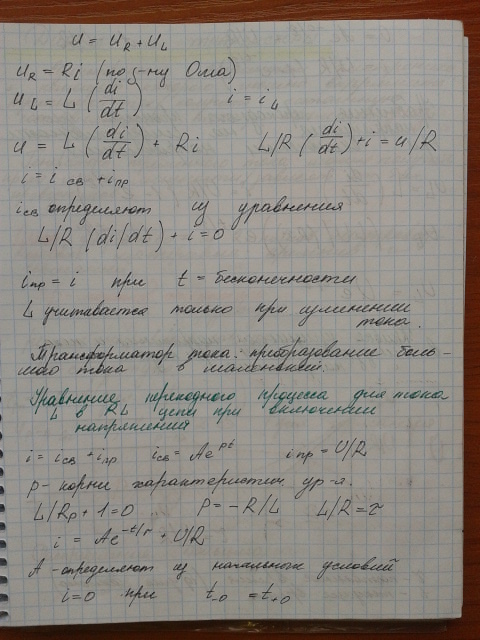 u = u_R + u_L
u_R = Ri (по з-ну Ома)
u_L = L (di/dt)    i = i_L
u = L (di/dt) + Ri    L/R (di/dt) + i = u/R
i = i св + i пр
i св определяют из уравнения
L/R (di/dt) + i = 0
i пр = i при t = бесконечности
L учитывается только при изменении
тока.
Трансформатор тока: прибразование боль-
шого тока в маленький.
Уравнение переходного процесса для тока
L в RL цепи при включении
напряжения
i = i св + i пр    i св = Ae^pt    i пр = U/R
p - корни характеристич. ур-я.
L/Rp + 1 = 0    P = -R/L    L/R = τ
i = Ae^-t/τ + U/R
A - определяют из начальных условий
i = 0 при t-0 = t+0